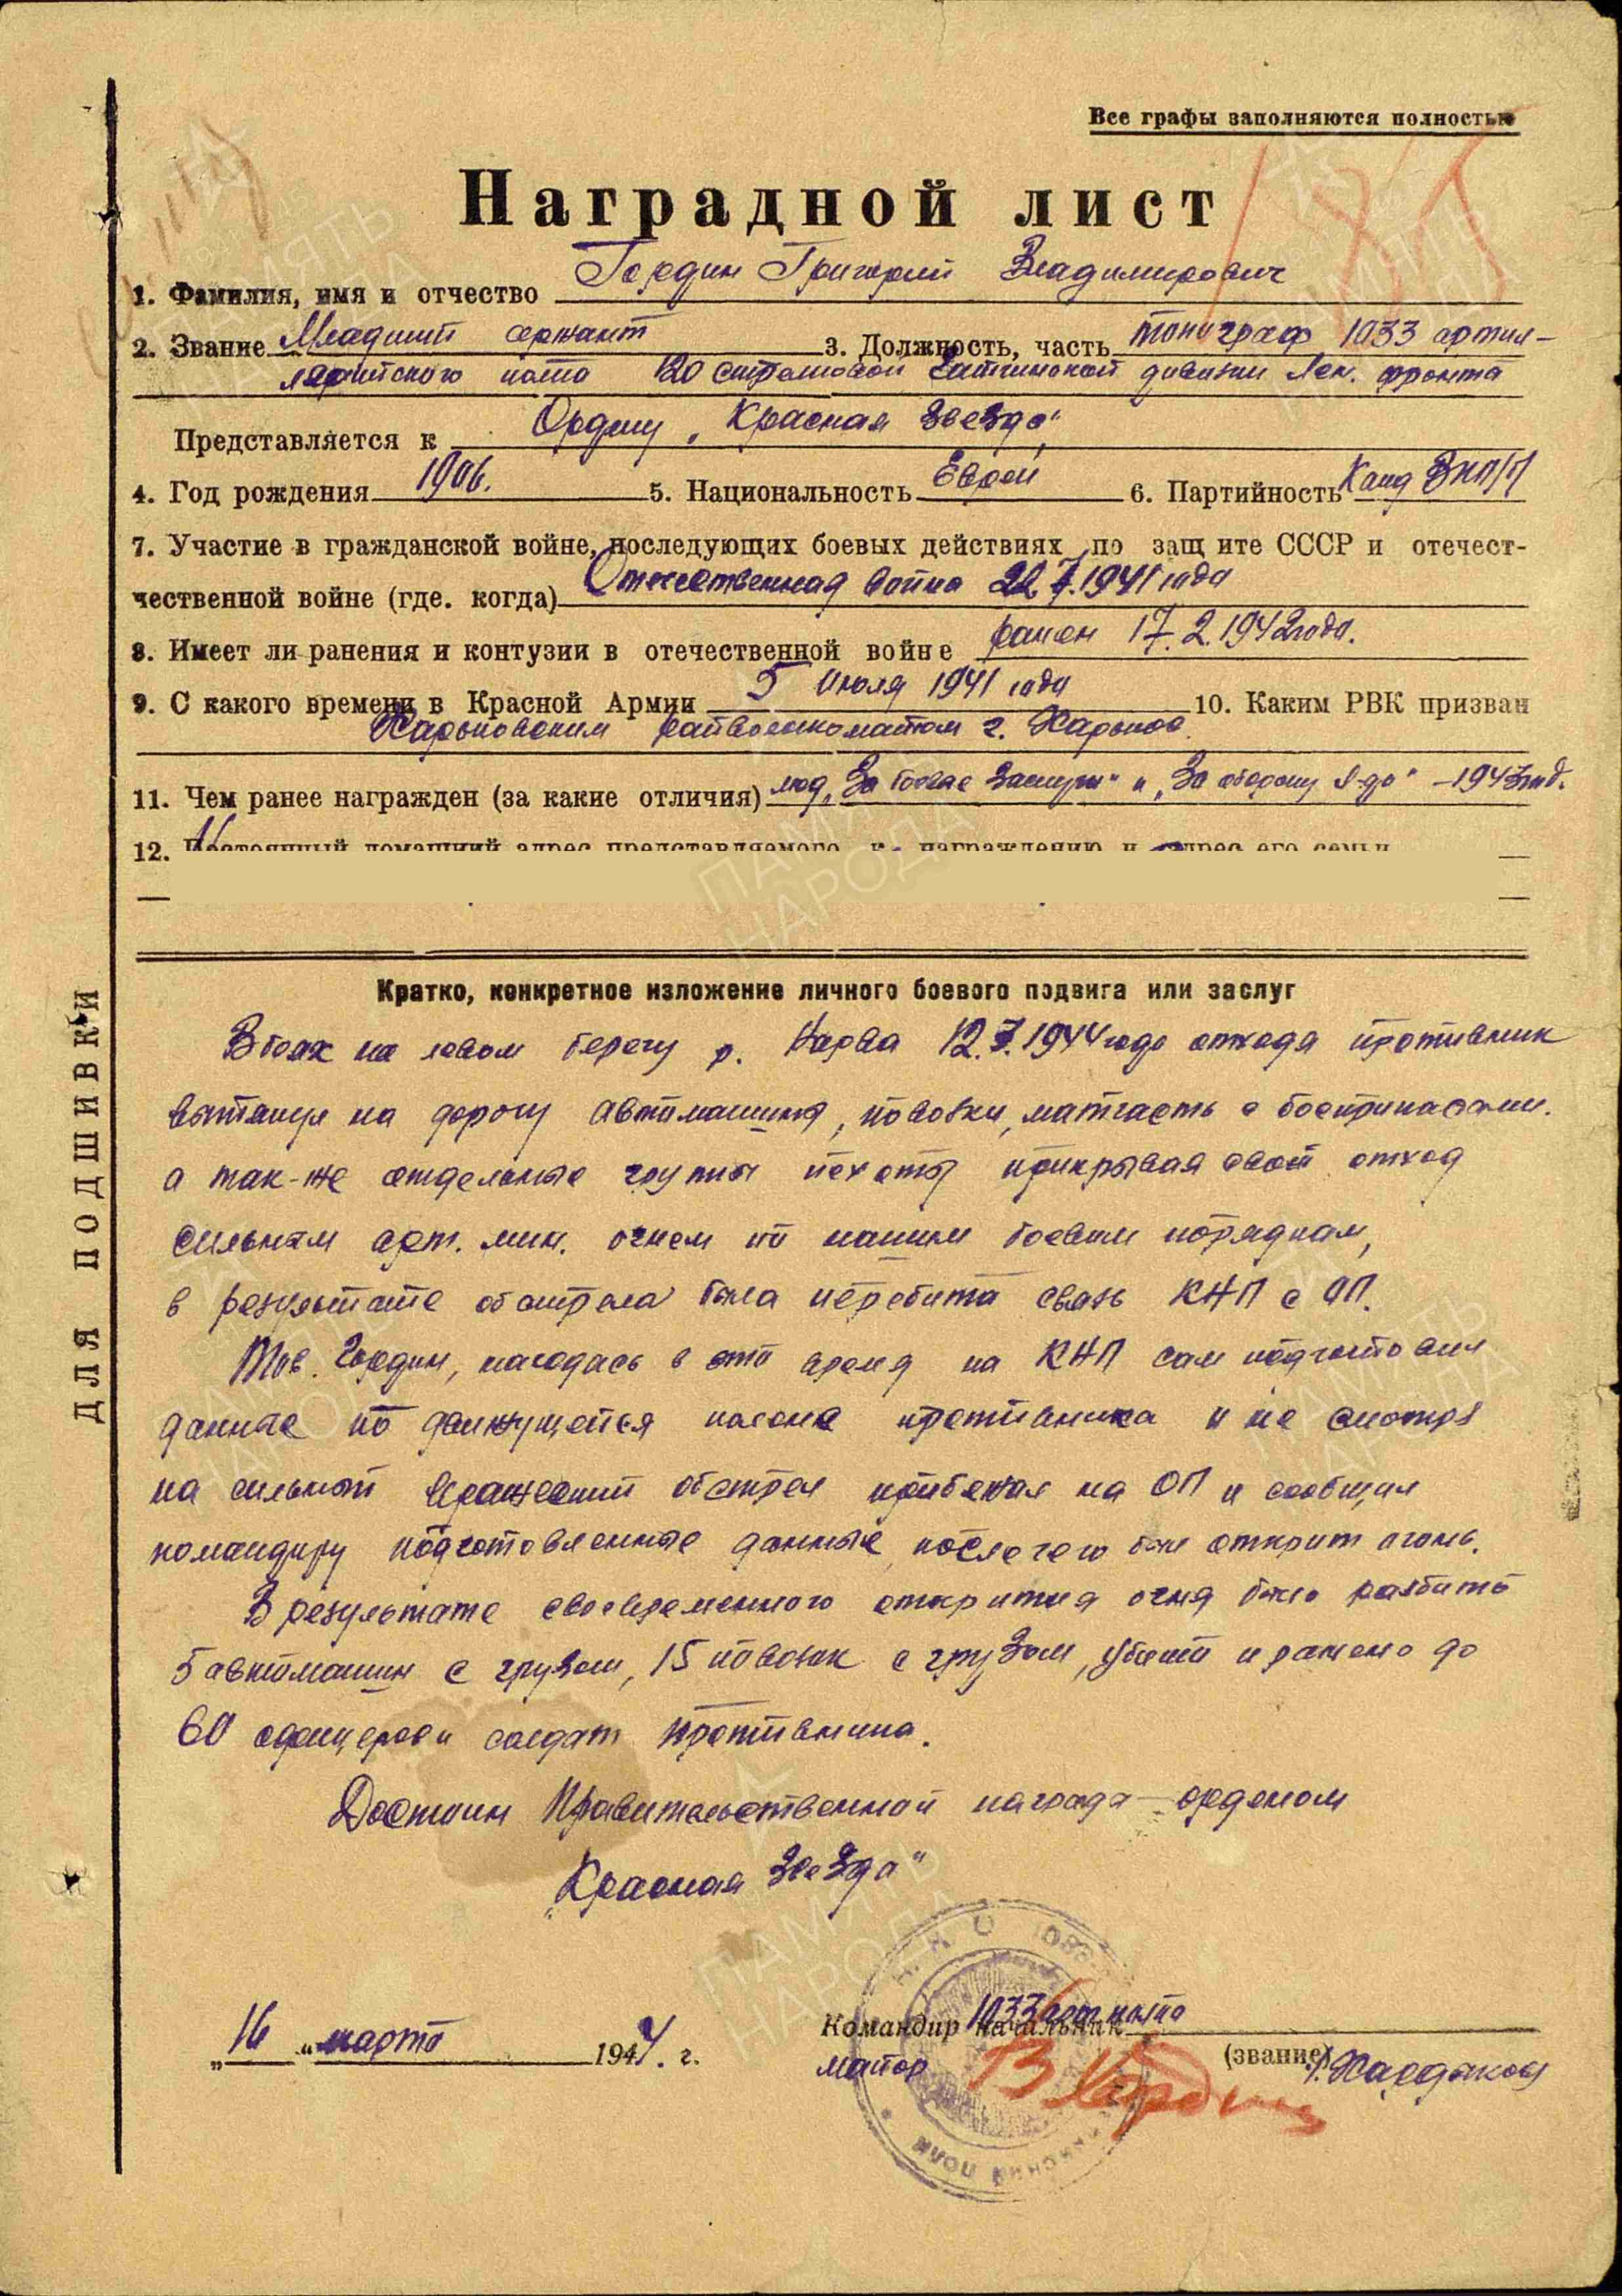 Все графы заполняются полностью
Наградной лист
1. Фамилия, имя и отчество Гордин Григорий Владимирович
2. Звание Младший сержант 3. Должность, часть топограф 1033 артил-
лерийского полка 120 стрелковой Гатчинской дивизии Лен. фронта
Представляется к Ордену „Красная Звезда"
4. Год рождения 1906. 5. Национальность Еврей 6. Партийность Канд ВКП/б/
7. Участие в гражданской войне, последующих боевых действиях по защ ите СССР и отечест-
чественной войне (где. когда) Отечественная война 22.7.1941 года
8. Имеет ли ранения и контузии в отечественной войне ранен 17.2.1942 года.
9. С какого времени в Красной Армии 5 июля 1941 года 10. Каким РВК призван
Харьковским райвоенкоматом г. Харьков
11. Чем ранее награжден (за какие отличия) мед. „За боевые заслуги" и „За оборону Л-да" - 1943 год.
12. Постоянный домашний адрес представляемого к награждению и адрес его семьи
Кратко, конкретное изложение личного боевого подвига или заслуг
В боях на левом берегу р. Нарва 12.3.1944 года отходя противник
вытянул на дорогу автомашины, повозки, матчасть с боеприпасами.
а так-же отдельные группы пехоты прикрывая свой отход
сильным арт. мин. огнем по нашим боевым порядкам,
в результате обстрела была перебита связь КНП с ОП.
Тов. Гордин, находясь в это время на КНП сам подготовил
данные по движущейся колоне противника и не смотря
на сильный вражеский обстрел прибежал на ОП и сообщил
командиру подготовленные данные, после чего был открит огонь.
В результате своевременного открития огня было разбито
5 автомашин с грузом, 15 повозок с грузом, убито и ранено до
60 офицеров и солдат противника.
Достоин Правительственной награды - орденом
„Красная Звезда"
„16" марта 1944. г.
Командир начальник 1033 арт полка
майор (звание) Хардиков
ДЛЯ ПОДШИВКИ
ПАМЯТЬ НАРОДА